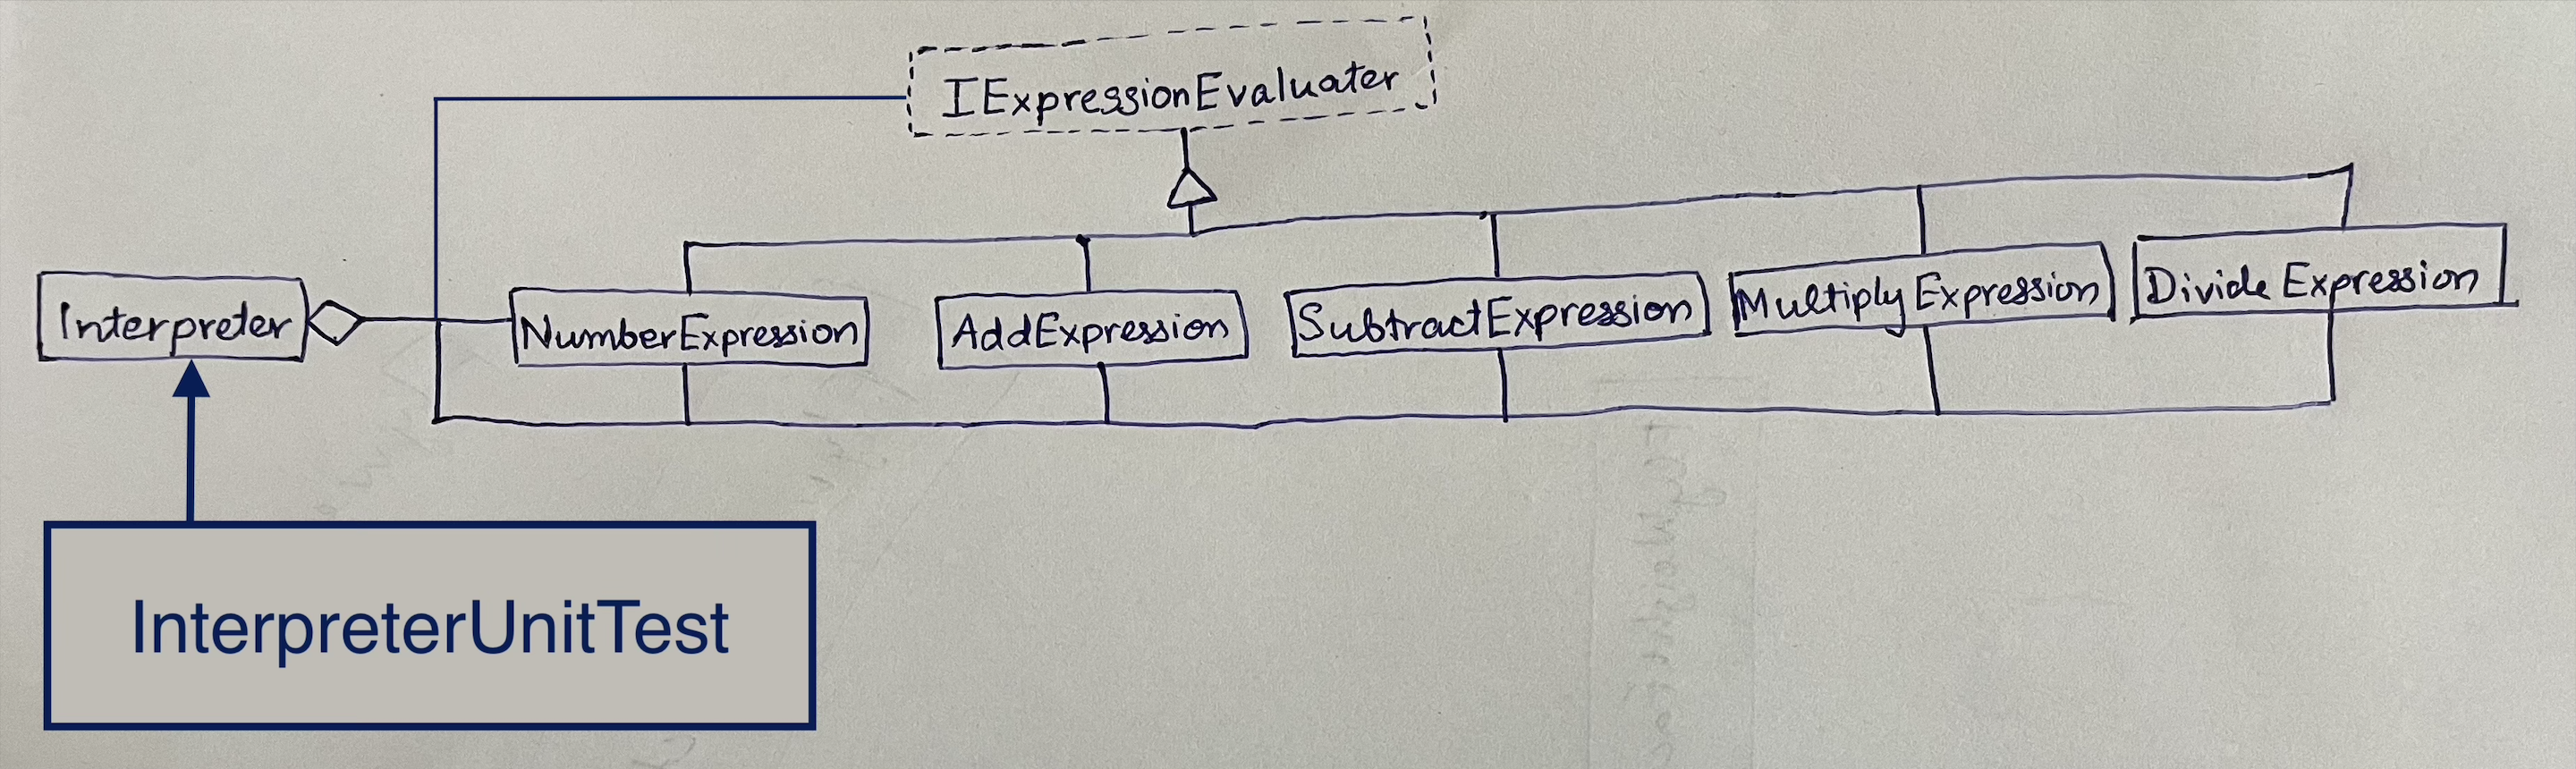 IExpressionEvaluater
Interpreter
NumberExpression
AddExpression
SubtractExpression
Multiply Expression
Divide Expression
InterpreterUnitTest